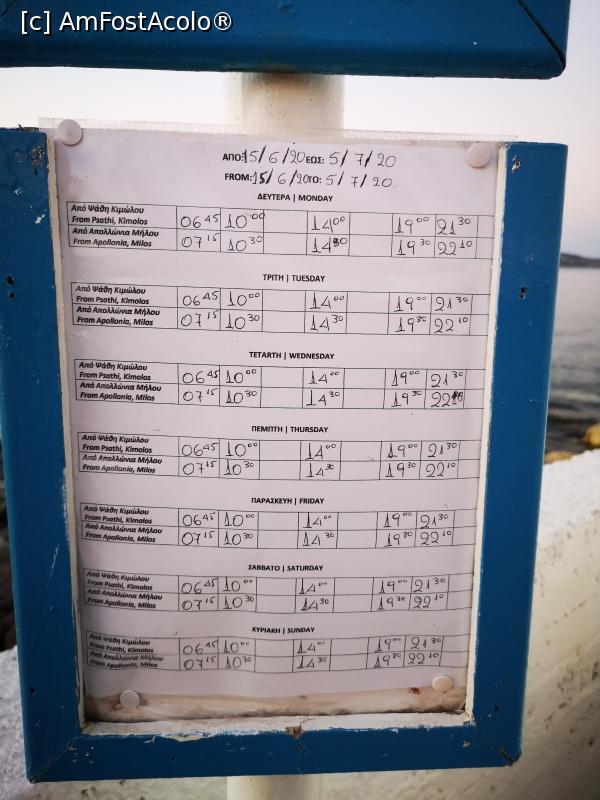 [c] AmFostAcolo®
ΑΠΟ: 15/6/20 ΕΩΣ: 5/7/20
FROM: 15/6/20 TO: 5/7/20
ΔΕΥΤΕΡΑ | MONDAY
Από Ψάθη Κιμώλου
From Psathi, Kimolos 06 45 10 00 14 00 19 00 21 30
Από Απολλώνια Μήλου
From Apollonia, Milos 07 15 10 30 14 30 19 30 22 10
ΤΡΙΤΗ | TUESDAY
Από Ψάθη Κιμώλου
From Psathi, Kimolos 06 45 10 00 14 00 19 00 21 30
Από Απολλώνια Μήλου
From Apollonia, Milos 07 15 10 30 14 30 19 30 22 10
ΤΕΤΑΡΤΗ | WEDNESDAY
Από Ψάθη Κιμώλου
From Psathi, Kimolos 06 45 10 00 14 00 19 00 21 30
Από Απολλώνια Μήλου
From Apollonia, Milos 07 15 10 30 14 30 19 30 22 10
ΠΕΜΠΤΗ | THURSDAY
Από Ψάθη Κιμώλου
From Psathi, Kimolos 06 45 10 00 14 00 19 00 21 30
Από Απολλώνια Μήλου
From Apollonia, Milos 07 15 10 30 14 30 19 30 22 10
ΠΑΡΑΣΚΕΥΗ | FRIDAY
Από Ψάθη Κιμώλου
From Psathi, Kimolos 06 45 10 00 14 00 19 00 21 30
Από Απολλώνια Μήλου
From Apollonia, Milos 07 15 10 30 14 30 19 30 22 10
ΣΑΒΒΑΤΟ | SATURDAY
Από Ψάθη Κιμώλου
From Psathi, Kimolos 06 45 10 00 14 00 19 00 21 30
Από Απολλώνια Μήλου
From Apollonia, Milos 07 15 10 30 14 30 19 30 22 10
ΚΥΡΙΑΚΗ | SUNDAY
Από Ψάθη Κιμώλου
From Psathi, Kimolos 06 45 10 00 14 00 19 00 21 30
Από Απολλώνια Μήλου
From Apollonia, Milos 07 15 10 30 14 30 19 30 22 10